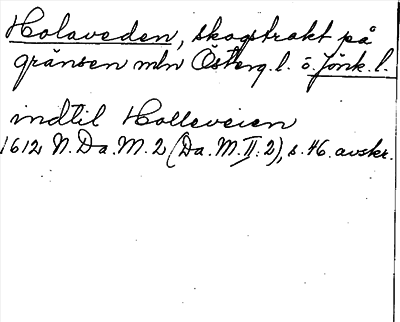 Holaveden, skogstrakt på
gränsen mln Österg.l. o. Jönk.l.
indtil Holleveien
1612 N.Da.M.2 (Da.M.II.2), s.46. avskr.